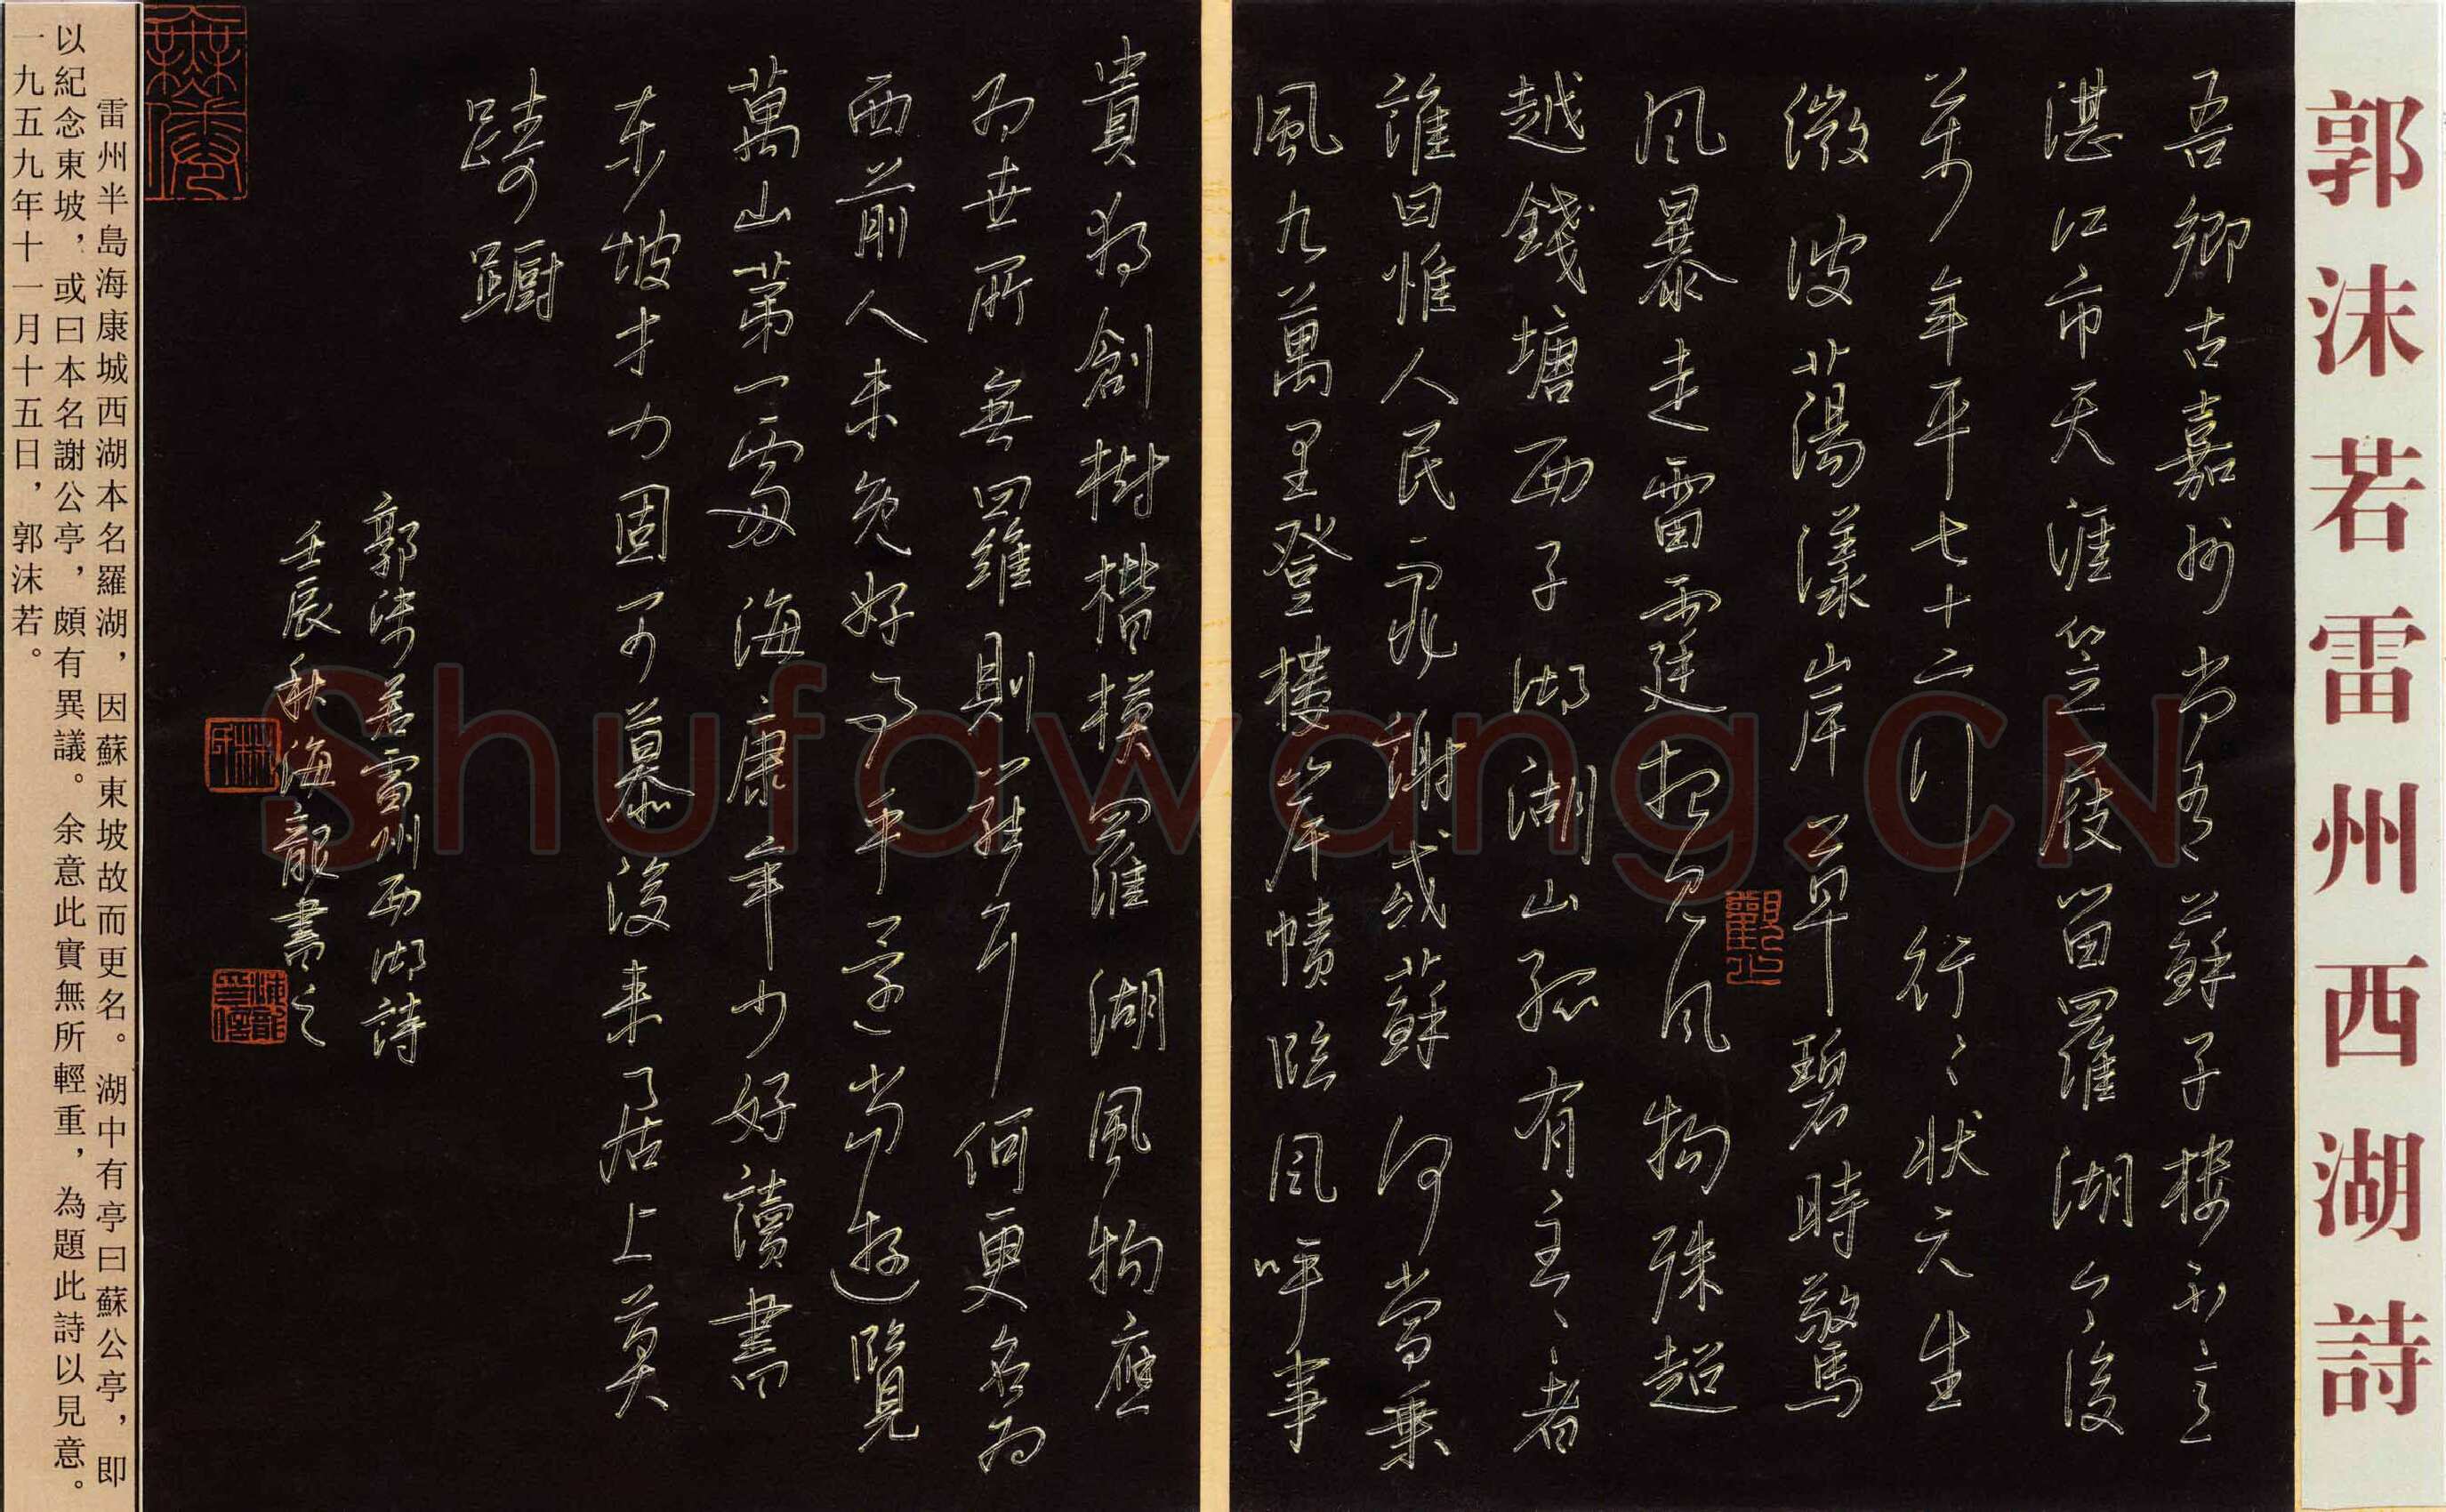 郭沫若雷州西湖詩
吾鄉古嘉州尚有蘇子樓不意
湛江市天涯笠屐留羅湖今後
萬年年平七十二川行行狀元生
微波蕩漾岸草碧時驚
風暴走雷霆抱見風物殊超
越錢塘西子湖湖山孤有主主者
誰曰惟人民亭非謝或蘇何當乘
風九萬里登樓岸幘臨風呼事
貴獨創樹楷模羅湖風物應
為世所無曰羅則羅耳何更名為
西前人未免好事乎平當遊覽
萬山第一處海康年少好讀書
東坡才力固可慕後來居上莫
踌躇
郭沫若雷州西湖詩
壬辰秋海龍書之
雷州半島海康城西湖本名羅湖，因蘇東坡故而更名。湖中有亭曰蘇公亭，即
以紀念東坡，或曰本名謝公亭，頗有異議。余意此實無所輕重，為題此詩以見意。
一九五九年十一月十五日，郭沫若。
Shufawang.CN